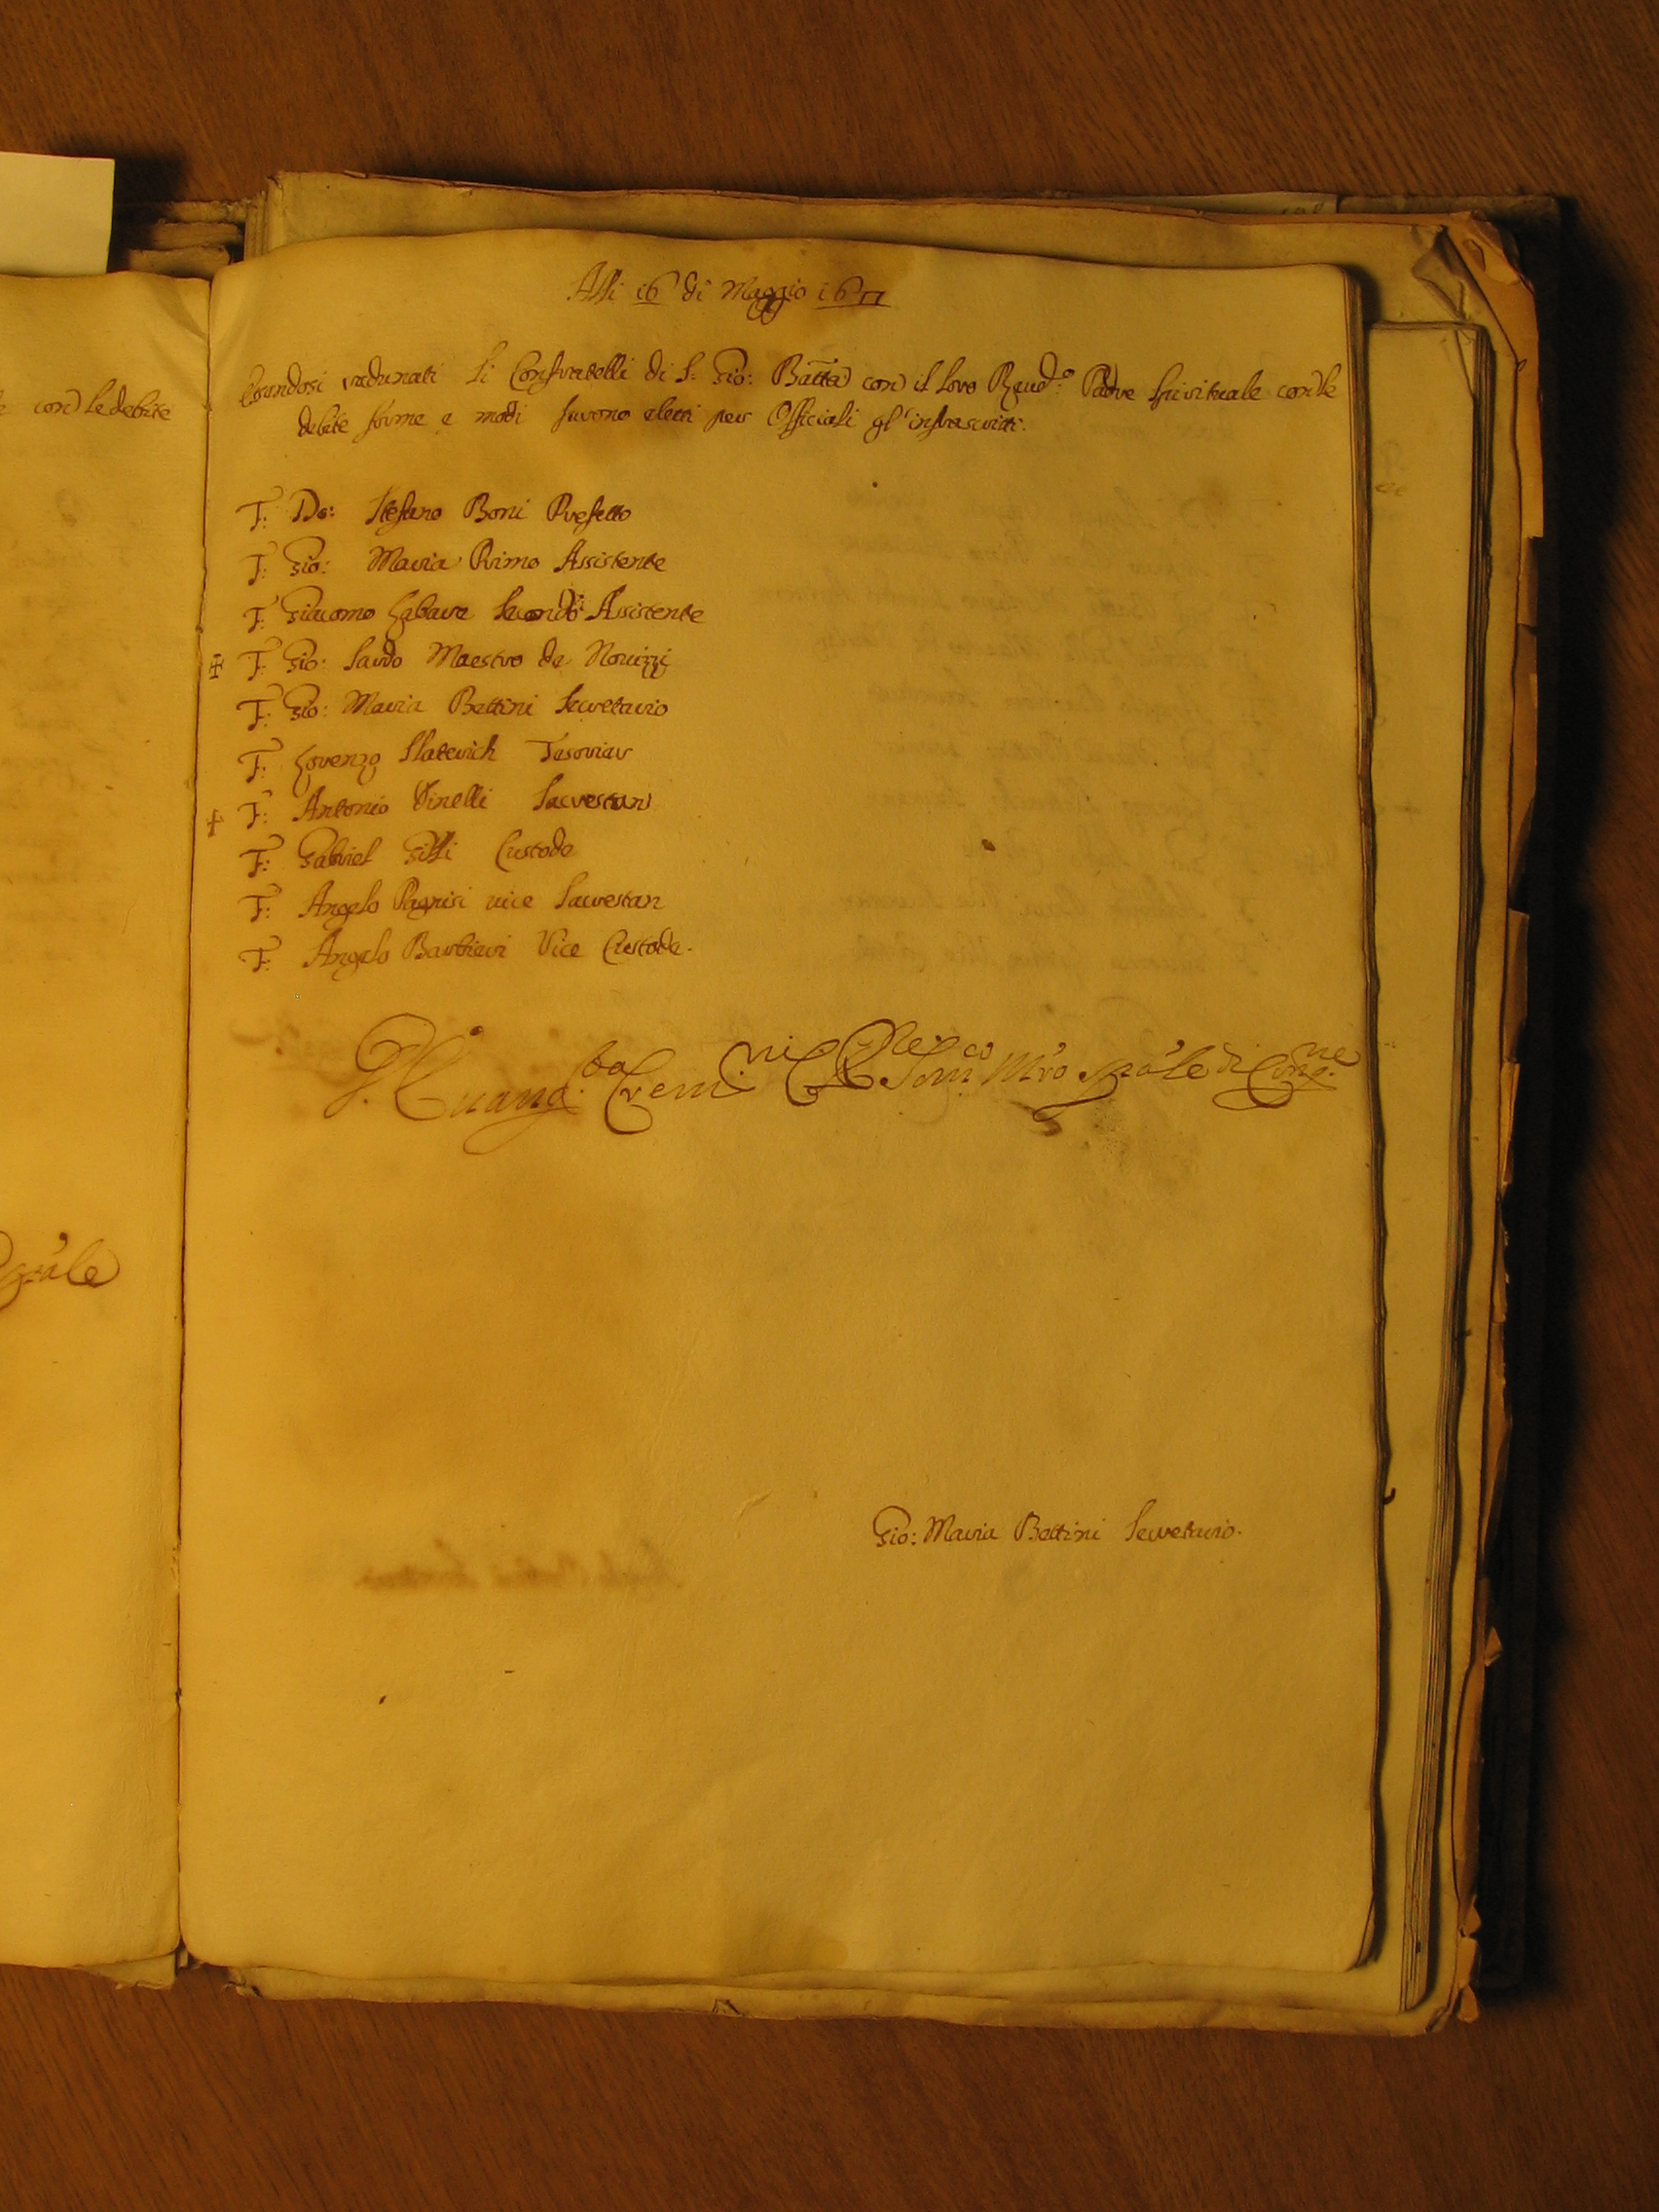 con le debite
Alli 16 di Maggio 1677
Essendosi radunati li Confratelli di S: Gio: Batta con il loro Reud:o Padre Spirituale con le
debite forme e modi furono eletti per Officiali gl'infrascritti.
F: Do: Stefano Boni Prefetto
F: Gio: Maria Primo Assistente
F: Giacomo Labara Secondo Assistente
F: Gio: Sardo Maestro de Nouizzi
F: Gio: Maria Bettini Secretario
F: Lorenzo Slatevich Tesorier
F: Antonio Vinelli Sacrestan
F: Gabriel Gilli Custode
F: Angelo Pagnisi vice Sacrestan
F: Angelo Barbieri Vice Custode.
Spále
Mro Spále di Congne
Gio: Maria Bettini Secretario.